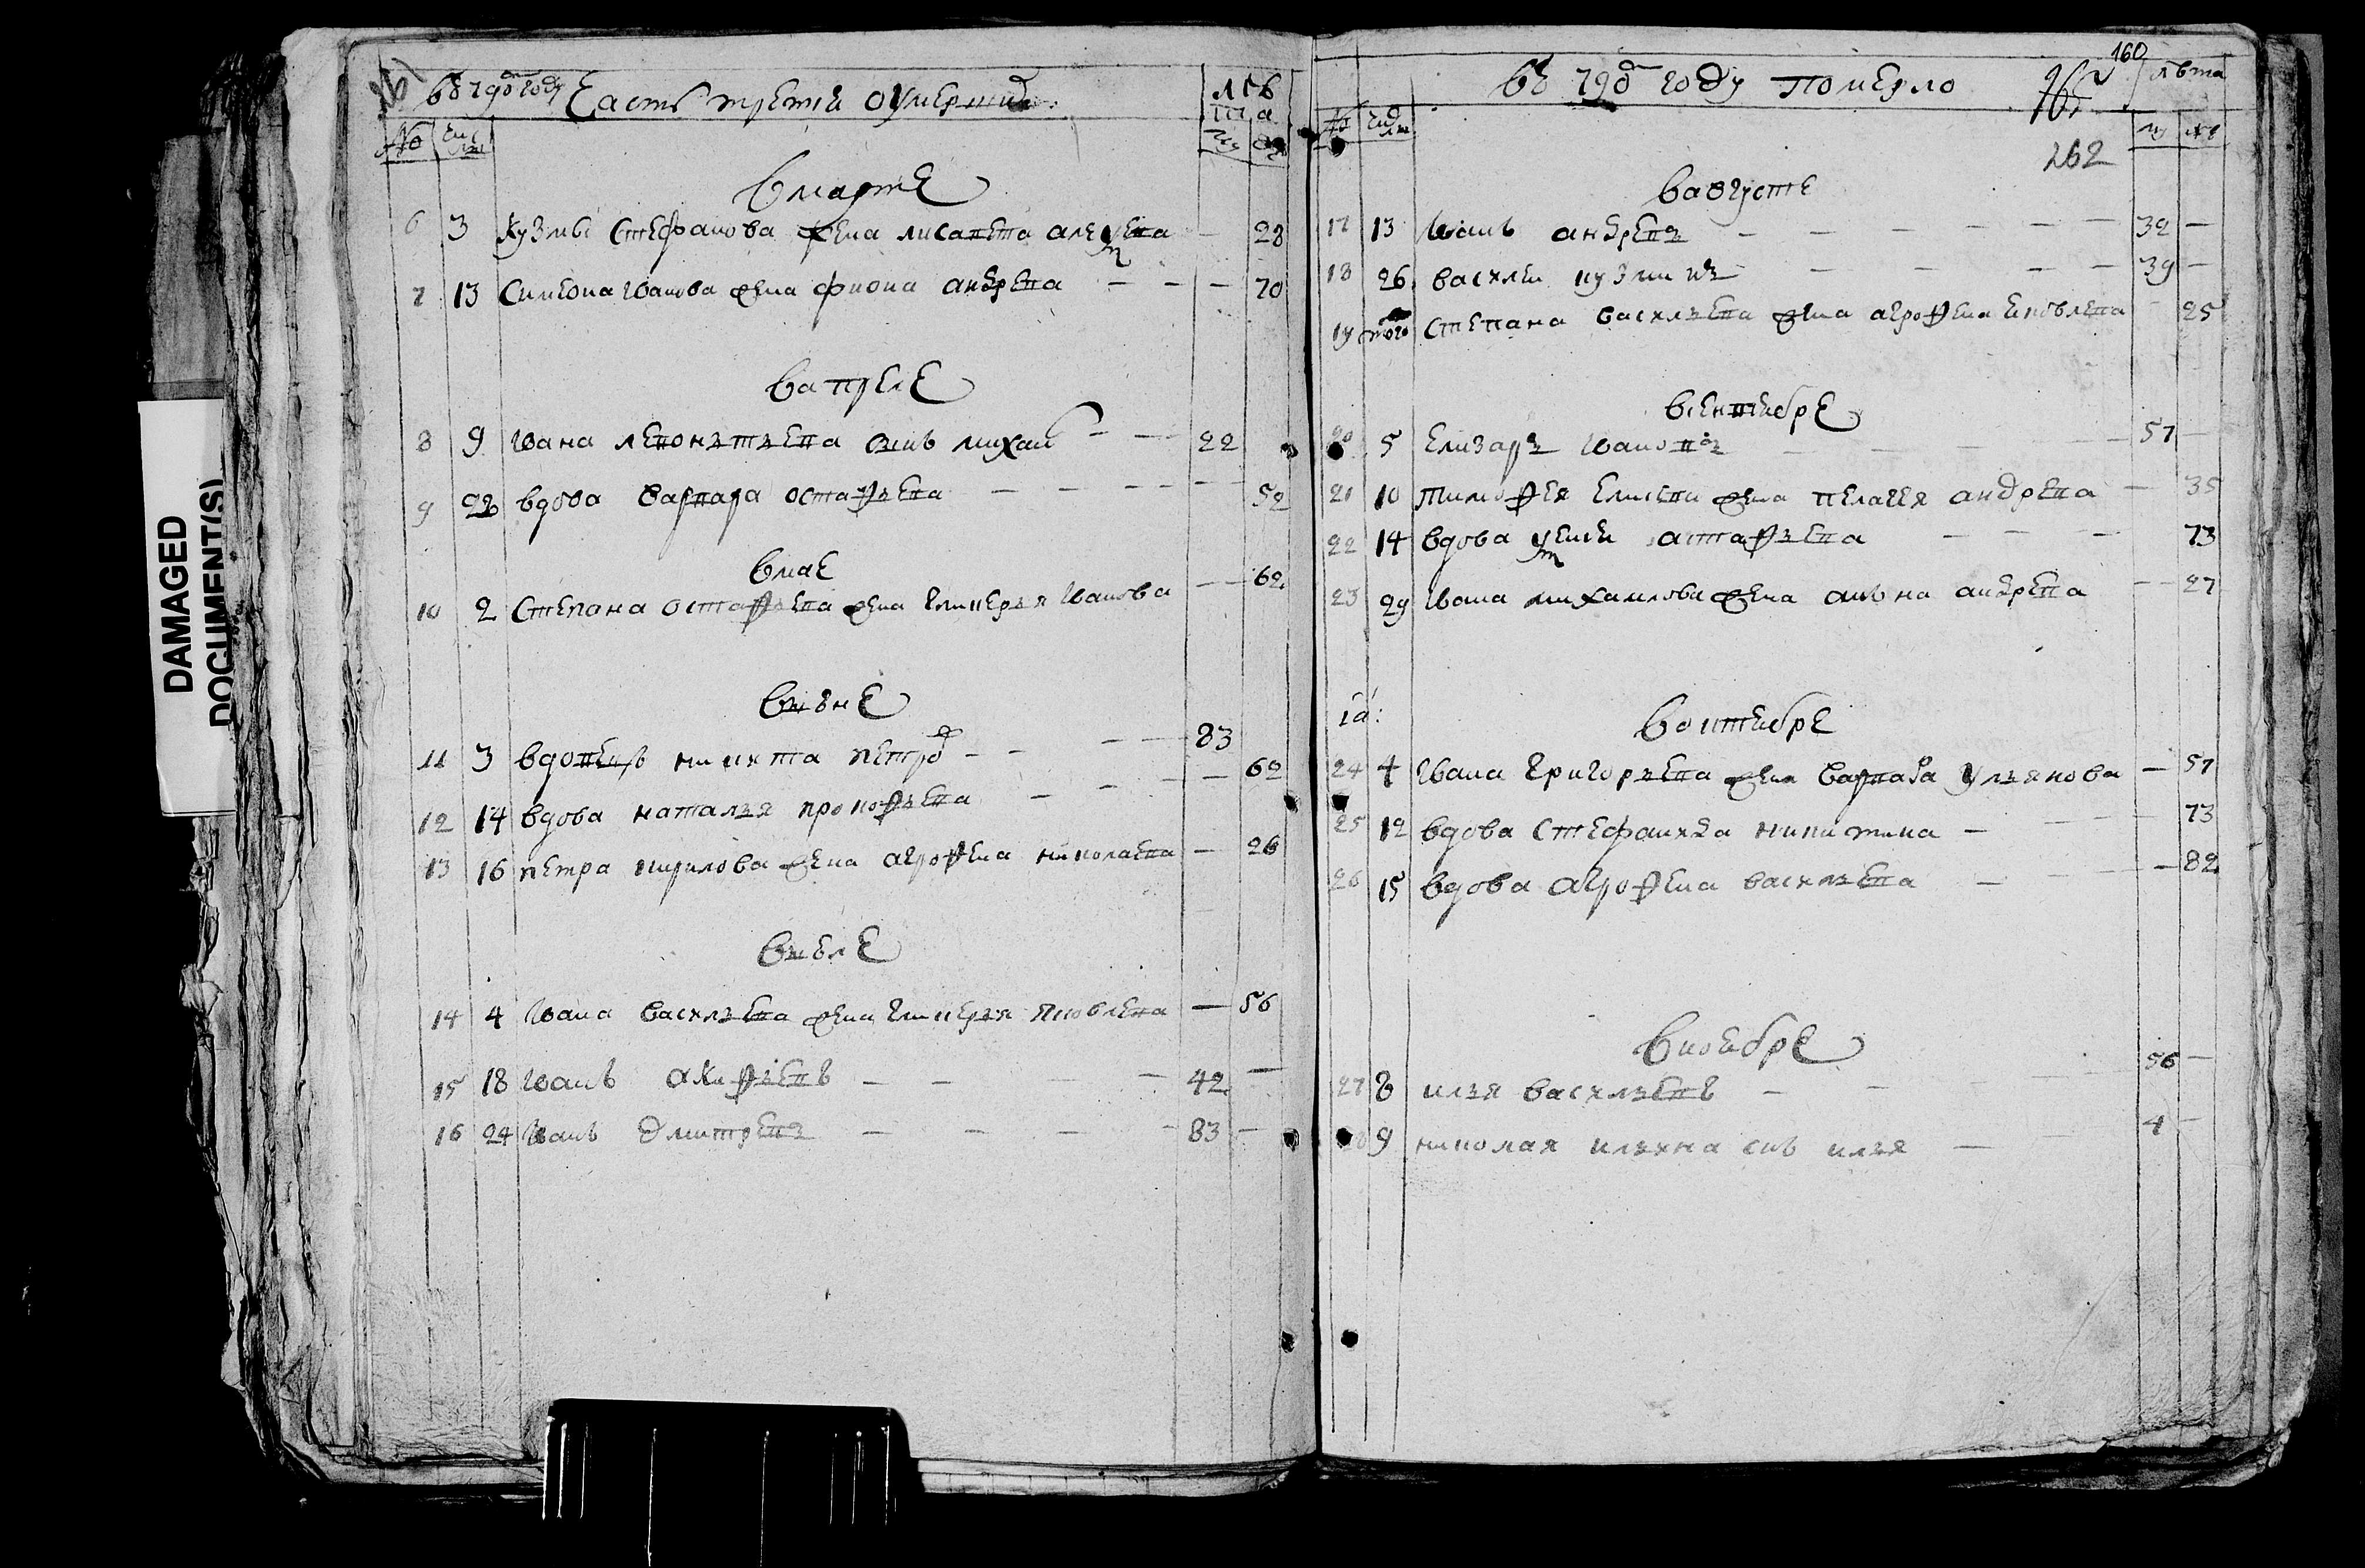 DAMAGED DOCUMENT(S)
161
въ 790м году Часть третия о умерших
лѣта
№ числ
му же
в марте
6 3 кузмы Стефанова жена лисавета — 28
7 13 Симеона иванова жена фиона андрева — — — 70
в апреле
8 9 ивана леонътьева сынъ михаи — — 22
9 22 вдова варвара остафьева — — — — 52
в мае
10 2 Степана остафьева жена гликерья иванова — — 62
в июне
11 3 вдовецъ никита петро — — — — 83
12 14 вдова наталья прокофьева — — — — 62
13 16 петра кирилова жена агрофена николаева — 26
в июле
14 4 ивана васильева жена гликерья яковлева — 56
15 18 иванъ — — — — 42 —
16 24 иванъ дмитревъ — — — — 83 —
160
въ 790 году померло
лѣта
№ числ
му же
262
в августе
17 13 иванъ андревъ — — — — — — 32 —
18 26 василеи кузминъ — — — — 39 —
19 того Степана васильева жена агрофена ековлева — 25
в сентебре
20 5 Елизаръ ивановъ — — — 57 —
21 10 тимофея жена пелагея андрева — 35
22 14 вдова астафьева — — — 73
23 29 ивана михаилова жена анъна андрева — — 27
в октебре
24 4 ивана григорьева жена варвара ульянова — 57
25 12 вдова Стефанида никитина — — — — 73
26 15 вдова агрофена васильева — — — — 82
в ноебре
27 8 илья васильевъ — — — 56 —
28 9 николая ильина снъ илья — — 4 —